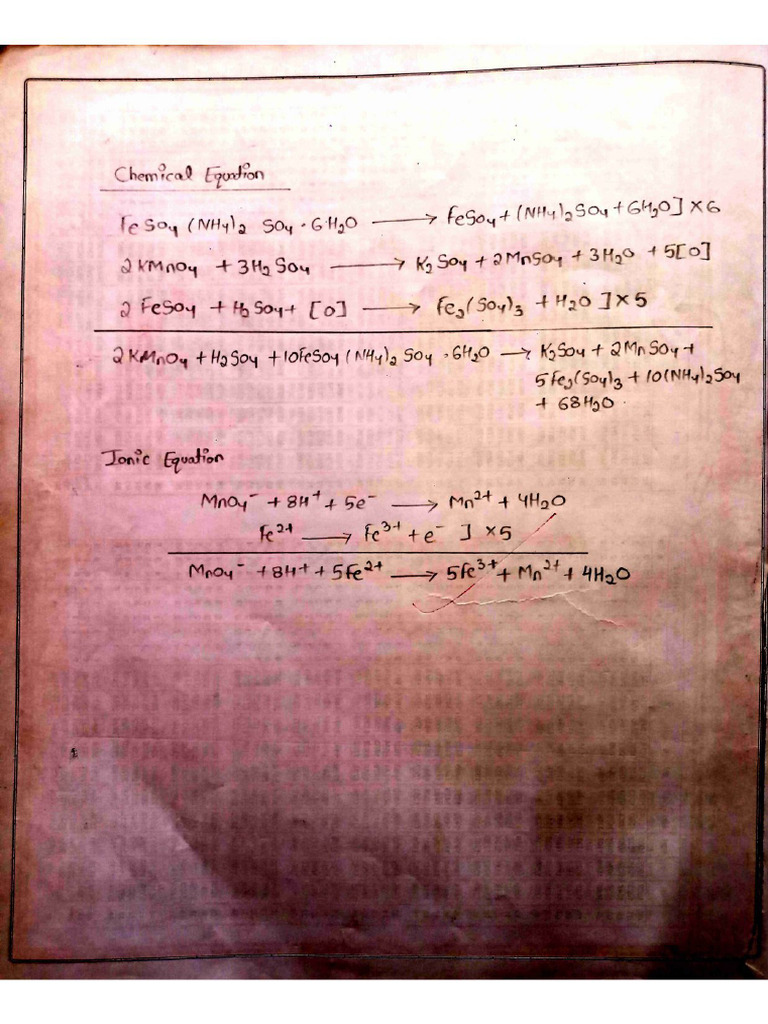 Chemical Equation
FeSO4 (NH4)2 SO4 · 6H2O ⟶ FeSO4 + (NH4)2 SO4 + 6H2O ] × 6
2KMnO4 + 3H2SO4 ⟶ K2SO4 + 2MnSO4 + 3H2O + 5[O]
2 FeSO4 + H2SO4 + [O] ⟶ Fe2(SO4)3 + H2O ] × 5
2KMnO4 + H2SO4 + 10FeSO4 (NH4)2 SO4 · 6H2O ⟶ K2SO4 + 2MnSO4 +
5Fe2(SO4)3 + 10(NH4)2SO4
+ 68H2O
Ionic Equation
MnO4⁻ + 8H⁺ + 5e⁻ ⟶ Mn²⁺ + 4H2O
Fe²⁺ ⟶ Fe³⁺ + e⁻ ] × 5
MnO4⁻ + 8H⁺ + 5Fe²⁺ ⟶ 5Fe³⁺ + Mn²⁺ + 4H2O